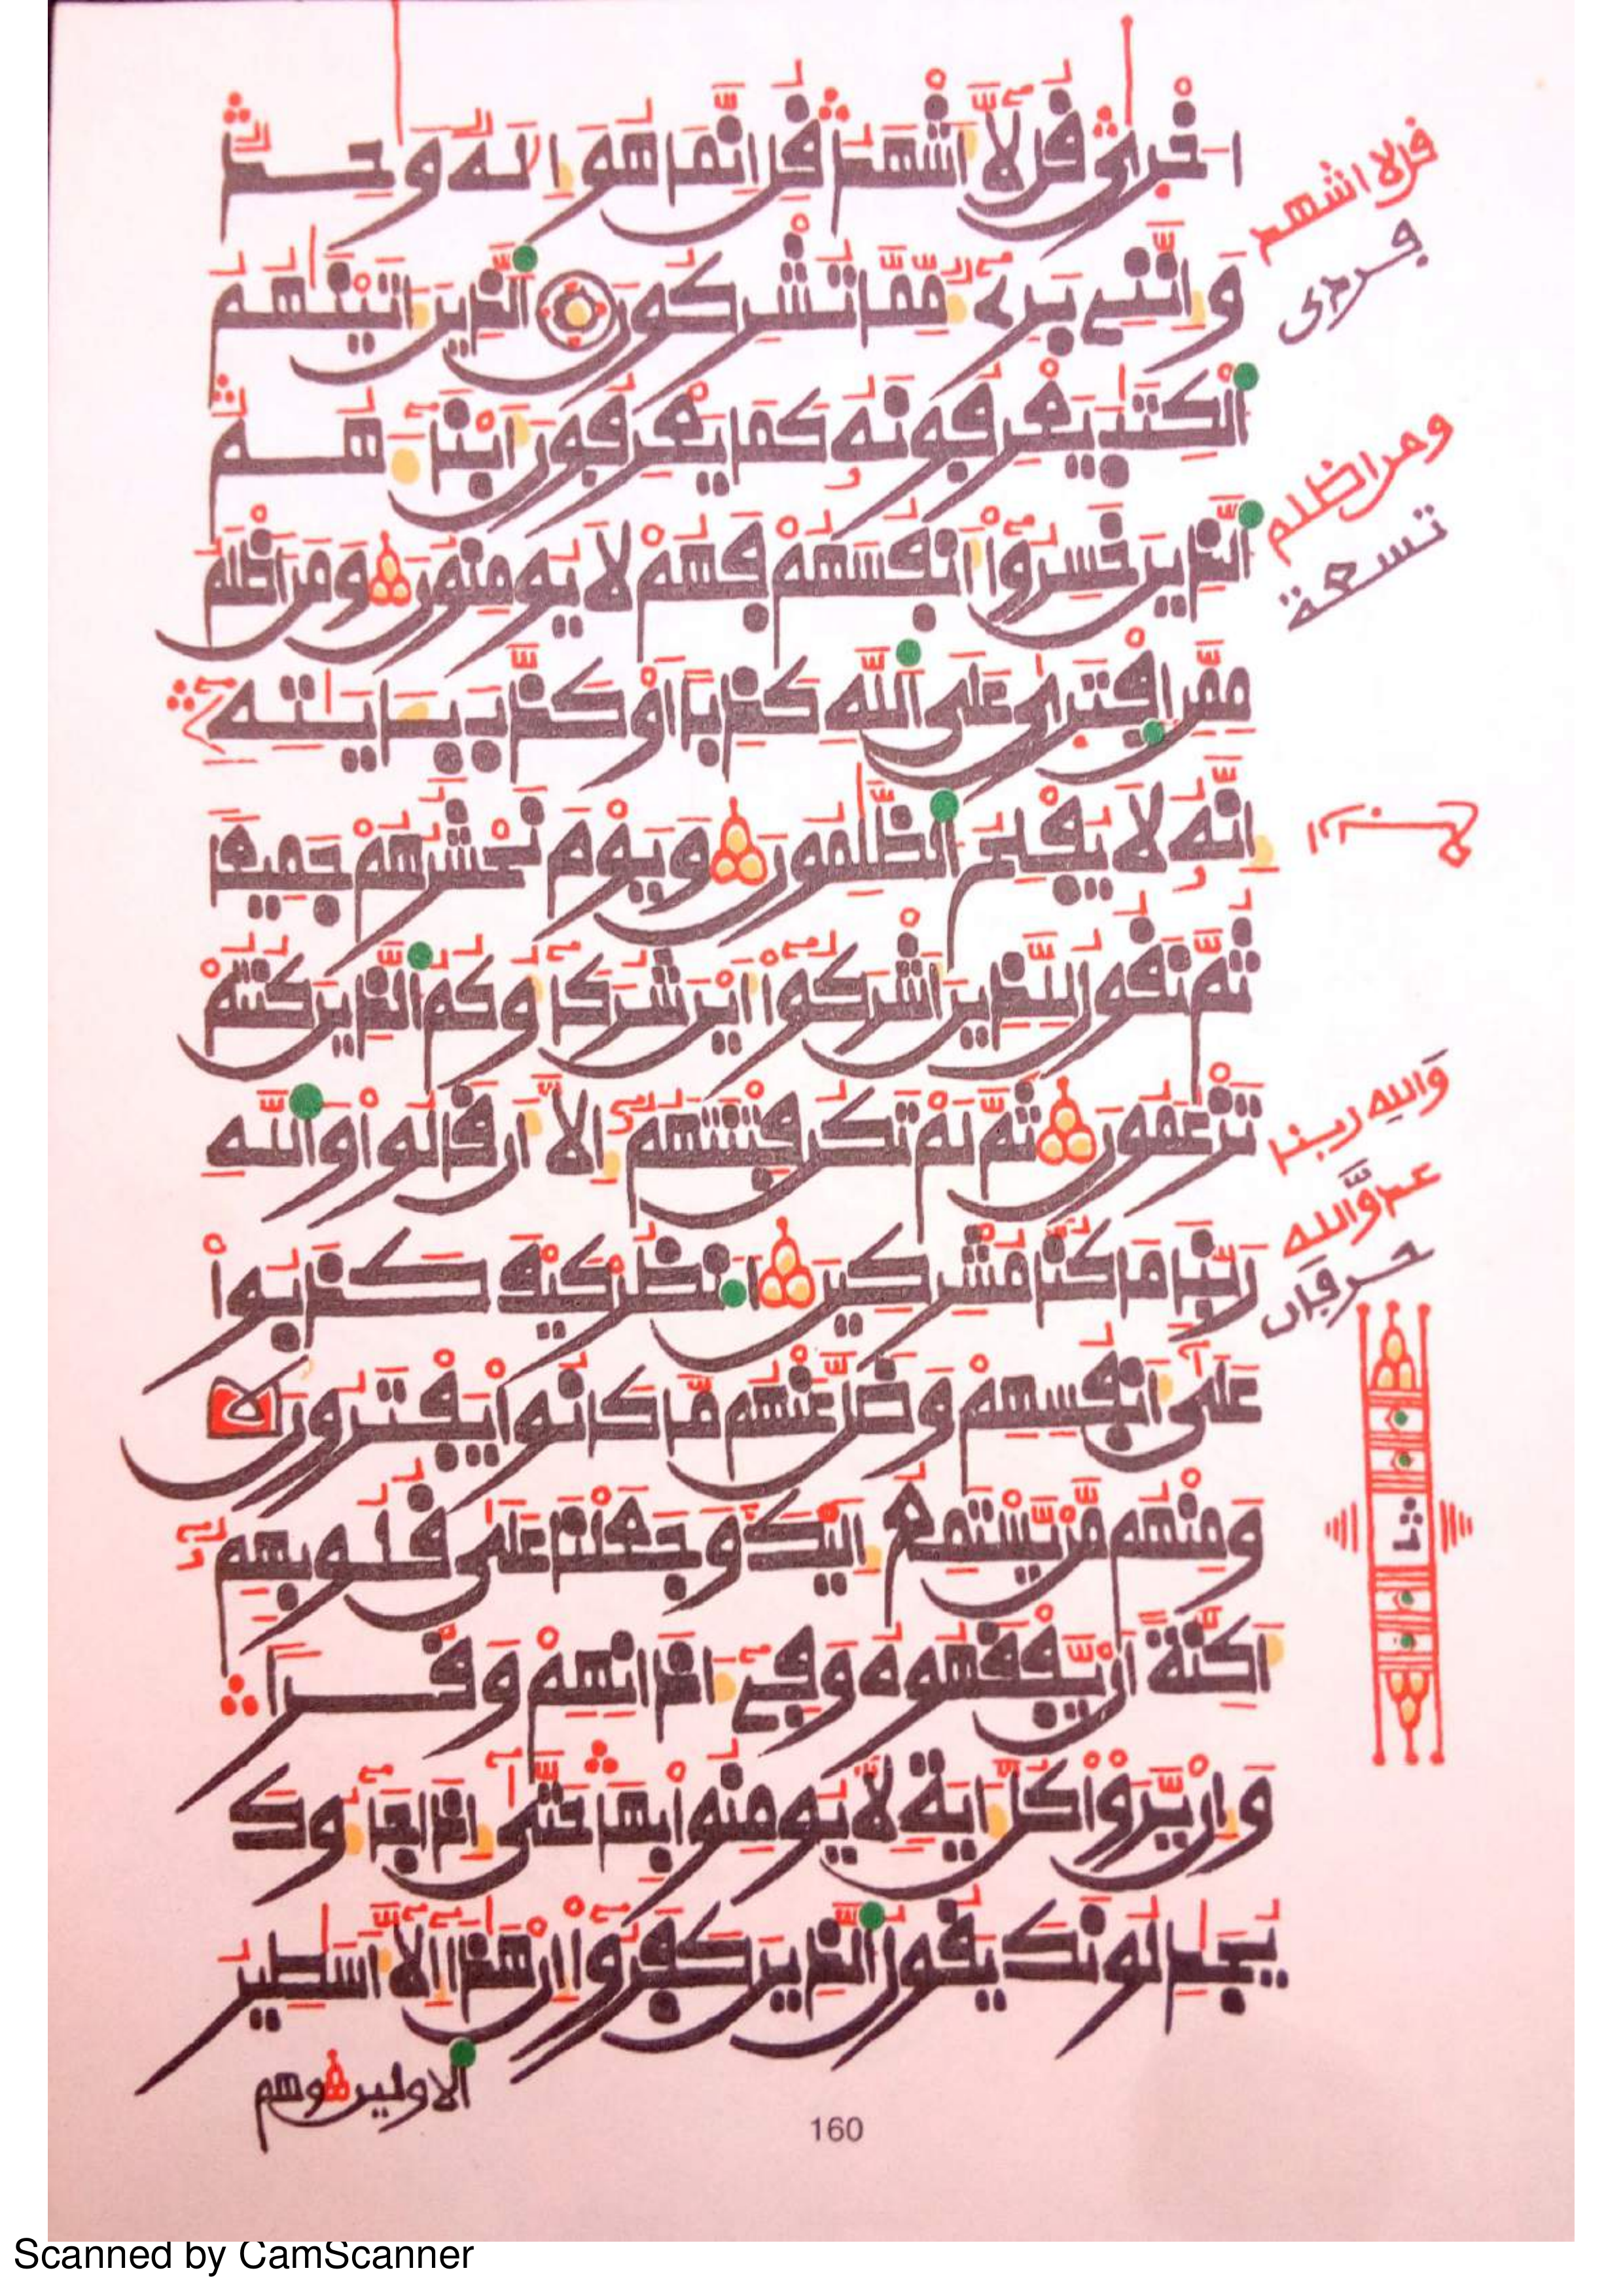 اخرى قل لا اشهد قل انما هو اله وحد
وانني برىء مما تشركون الذين اتينهم
الكتب يعرفونه كما يعرفون ابناءهم
الذين خسروا انفسهم فهم لا يومنون ومن اظلم
ممن افترى على الله كذبا او كذب بايته
انه لا يفلح الظلمون ويوم نحشرهم جميعا
ثم نقول للذين اشركوا اين شركاؤكم الذين كنتم
تزعمون ثم لم تكن فتنتهم الا ان قالوا والله
ربنا ما كنا مشركين انظر كيف كذبوا
على انفسهم وضل عنهم ما كانوا يفترون
ومنهم من يستمع اليك وجعلنا على قلوبهم
اكنة ان يفقهوه وفي اذانهم وقرا
وان يروا كل اية لا يومنوا بها حتى اذا جاءوك
يجدلونك يقول الذين كفروا ان هذا الا اسطير
الاولين وهم
قل لا اشهد
ومن اظلم
تسعة
والله ربنا
حرفان
160
Scanned by CamScanner